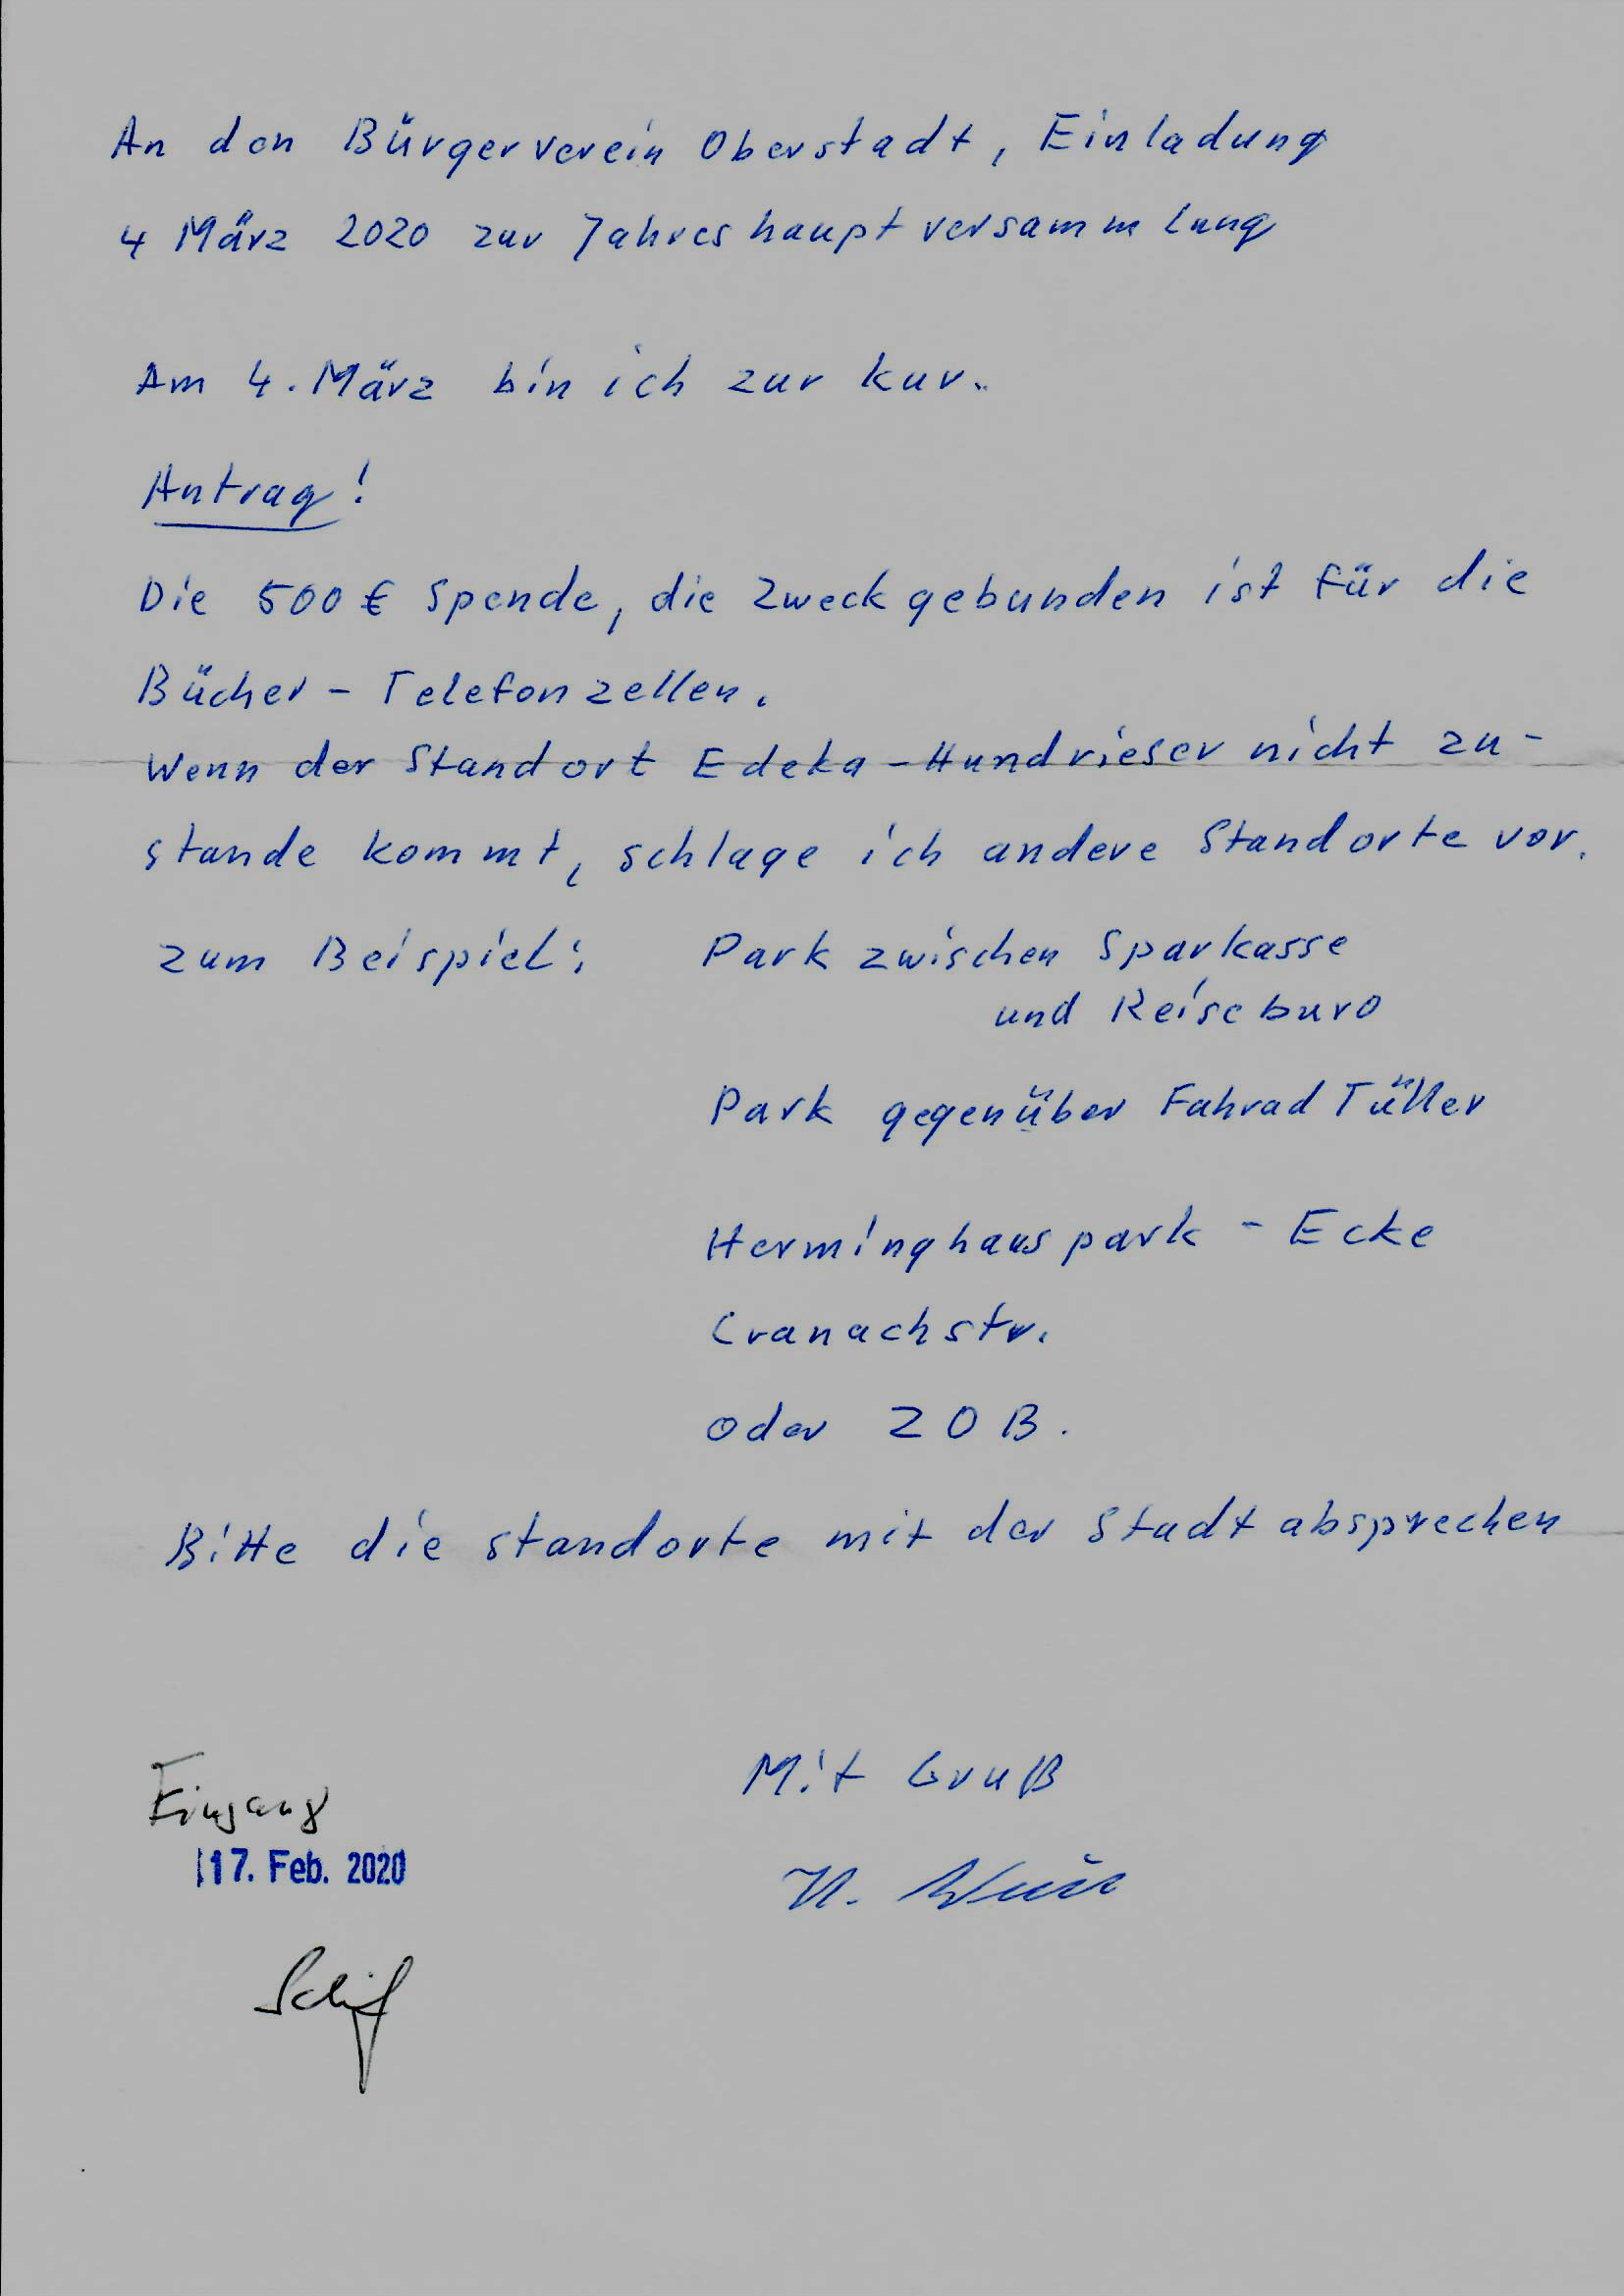 An den Bürgerverein Oberstadt, Einladung
4 März 2020 zur Jahreshauptversammlung
Am 4. März bin ich zur Kur.
Antrag!
Die 500 € Spende, die Zweckgebunden ist für die
Bücher - Telefonzellen.
Wenn der Standort Edeka - Hundrieser nicht zu-
stande kommt, schlage ich andere Standorte vor.
zum Beispiel: Park zwischen Sparkasse
und Reiseburo
Park gegenüber Fahrad Tüller
Herminghauspark - Ecke
Cranachstr.
oder ZOB.
Bitte die Standorte mit der Stadt absprechen
Mit Gruß
Eingang
17. Feb. 2020